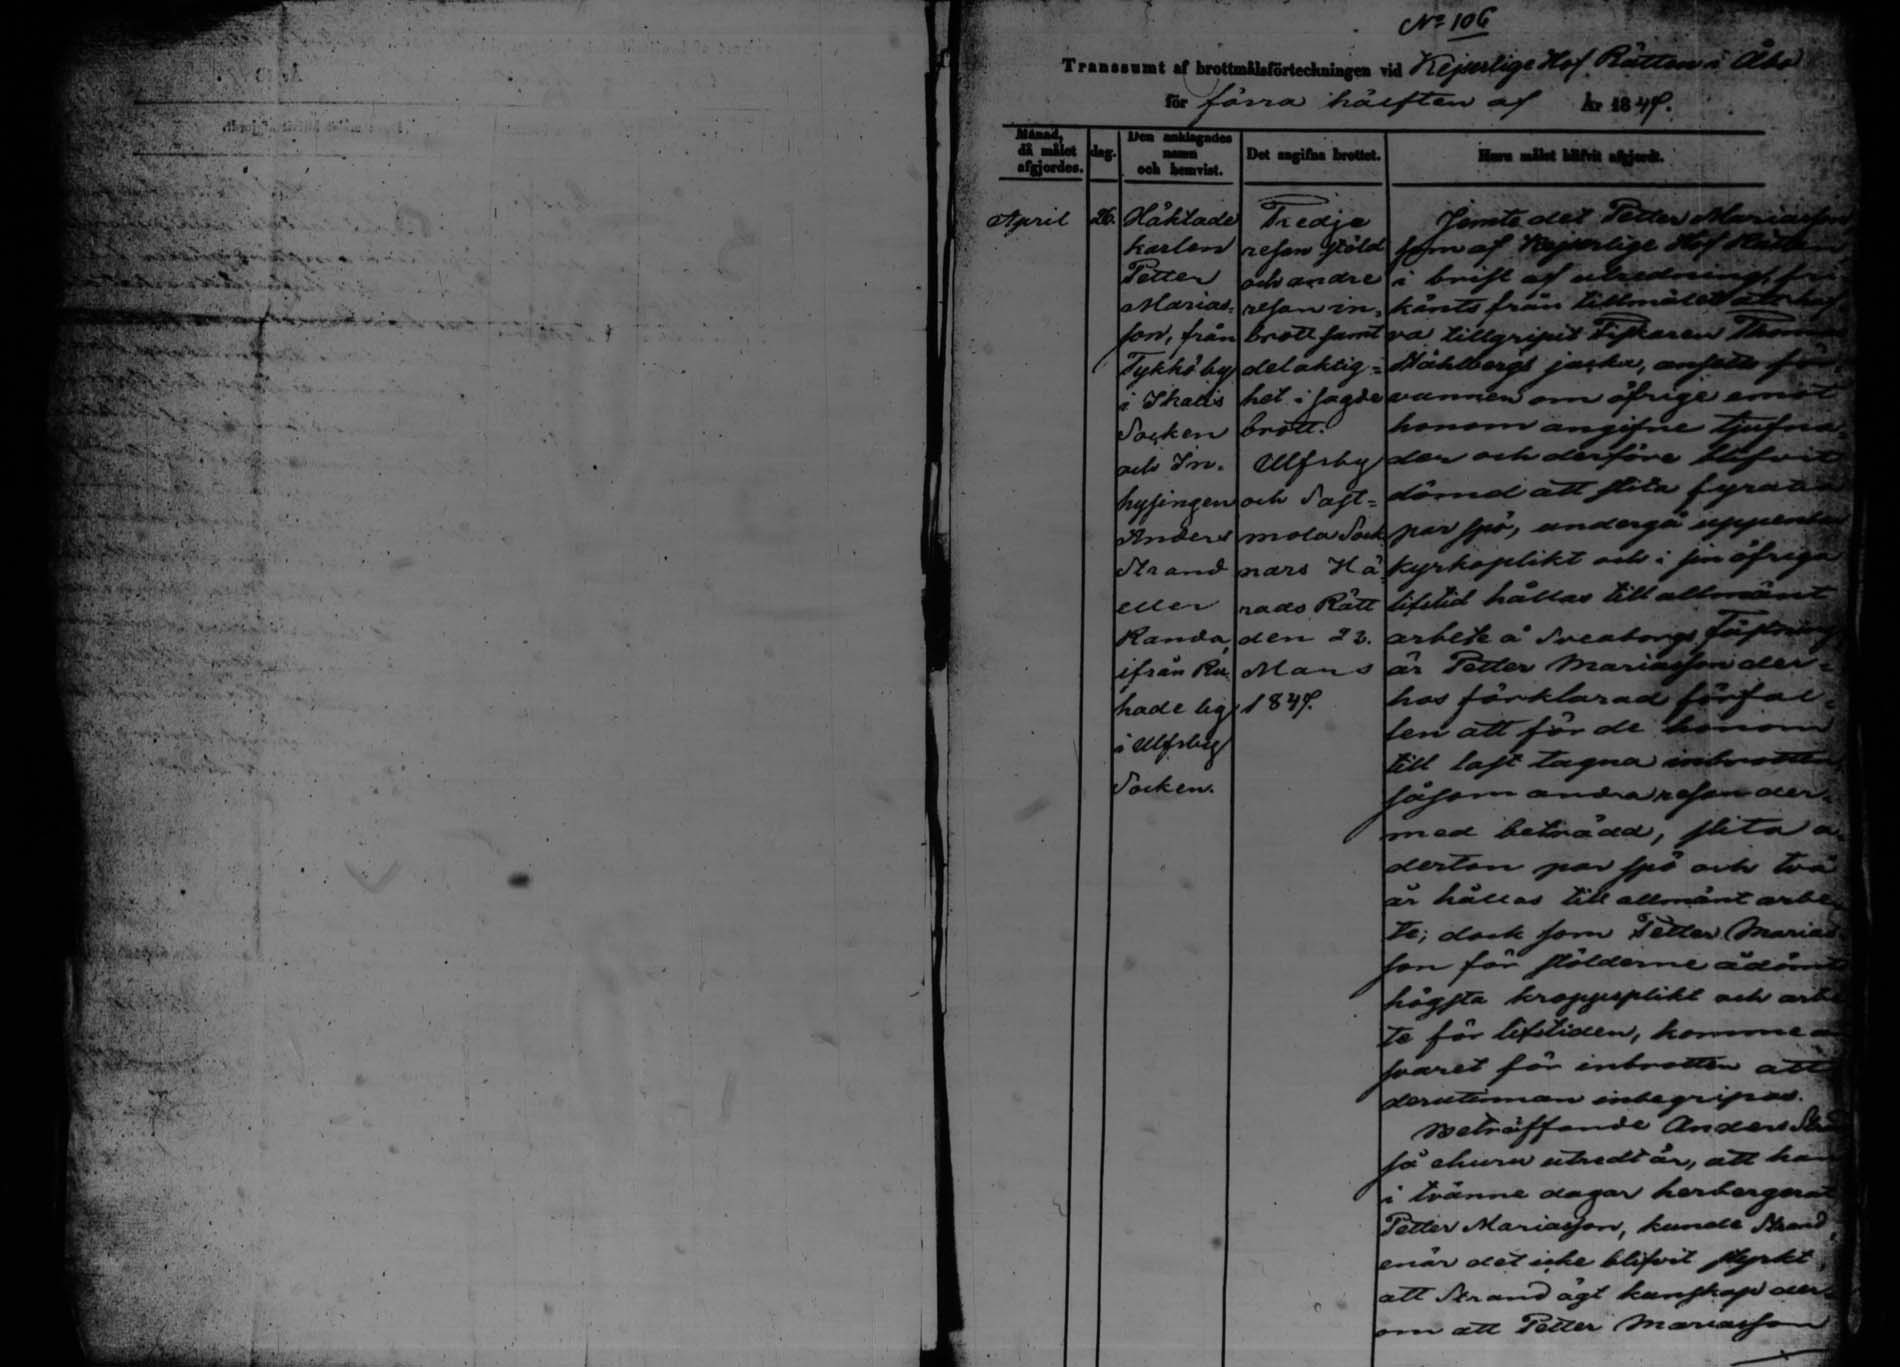 No 106
Transsumt af brottmålsförteckningen vid Kejserlige Hof Rätten i Åbo
för förra hälften af År 1847.
Månad, då målet afgjordes.
dag.
Den anklagades namn och hemvist.
Det angifna brottet.
Huru målet blifvit afgjordt.
April
26.
Häktade
karlen
Petter
Marias=
son, från
Tykkö by
i Ikalis
Socken
och In=
hysingen
Anders
Strand
eller
Randa,
ifrån
hade by
i Ulfsby
Socken.
Tredje
resan stöld
och andre
resan in=
brott samt
delaktig=
het i sagde
brott.
Ulfsby
och Sast=
mola Sock
nars Hä
rads Rätt
den 22.
Mars
1847.
Jemte det Petter Mariasson,
som af Kejserlige Hof Rätten,
i brist af utredning, fri
känts från tillmålet att haf
va tillgripit Fiskaren Thomas
Ståhlbergs jacka, ansetts för
vunnen om öfrige emot
honom angifne tjufna=
der och derföre blifvit
dömd att slita fyratio
par spö, undergå uppenbar
kyrkoplikt och i sin öfriga
lifstid hållas till allmänt
arbete å Sveaborgs Fästning,
är Petter Mariasson der=
hos förklarad förfal=
len att för de honom
till last tagna inbrotten,
såsom andra resan der=
med beträdd, slita a=
derton par spö och två
år hållas till allmänt arbe
te; dock som Petter Marias
son för stölderne ådömts
högsta kroppsplikt och arbe
te för lifstiden, komme an
svaret för inbrotten att
derutinnan inbegripas.
Beträffande Anders Strand
så ehuru utredt är, att han
i tvänne dagar herbergerat
Petter Mariasson, kunde Strand,
enär det icke blifvit styrkt,
att Strand ägt kunskap der=
om att Petter Mariasson